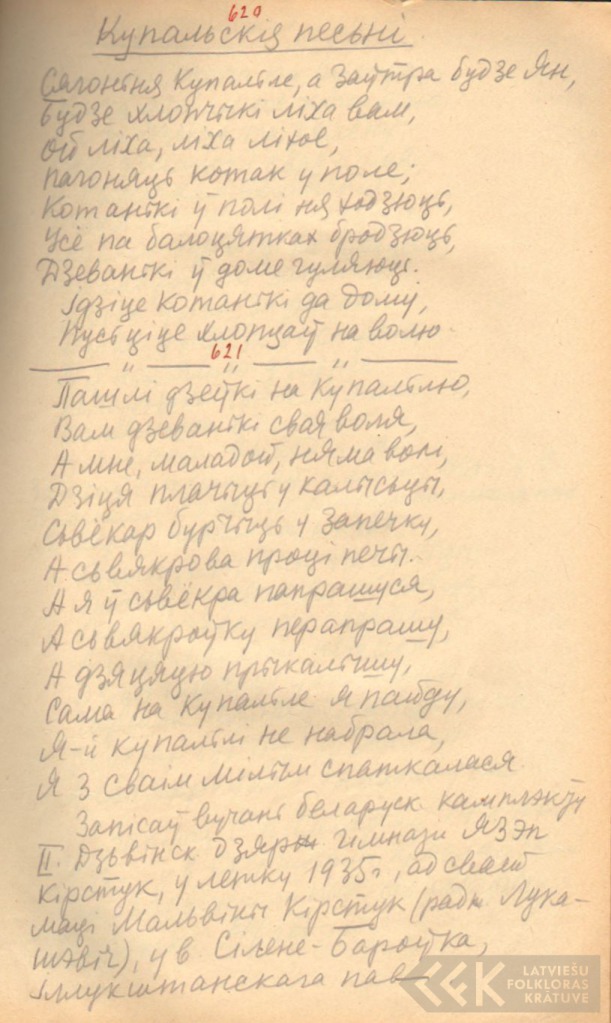 620
Купальскія песьні.
Сягоньня Купальле, а заўтра будзе Ян,
Будзе хлопчыкі ліха вам,
Ой ліха, ліха ліхое,
Пагоняць котак у поле;
Котанькі ў полі ня ходзюць,
Усе па балоцятках бродзюць,
Дзеванькі ў доме гуляюць.
Ідзіце котанькі да дому,
Пусьціце хлопцаў на волю
621
Пашлі дзеўкі на Купальлю,
Вам дзеванькі свая воля,
А мне, маладой, няма волі,
Дзіця плачыць у калысцы,
Сьвёкар бурчыць у запечку,
А сьвякрова проці печы.
А я ў сьвёкра папрашуся,
А сьвякроўку перапрашу,
А дзяцяцю прыкалышу,
Сама на Купальле я пайду,
Я-й купалы не набрала,
Я з сваім мілым спаткалася
Запісаў вучань беларуск. камплэкту
II. Дзьвінск дзярж гімназіі Язэп
Кірстук, у летку 1935г, ад сваей
маці Мальвіны Кірстук (радж Лука-
шэвіч), у в. Сільене-Бароўка,
Ілукштанскага пав
LATVIEŠU
FOLKLORAS
KRĀTUVE